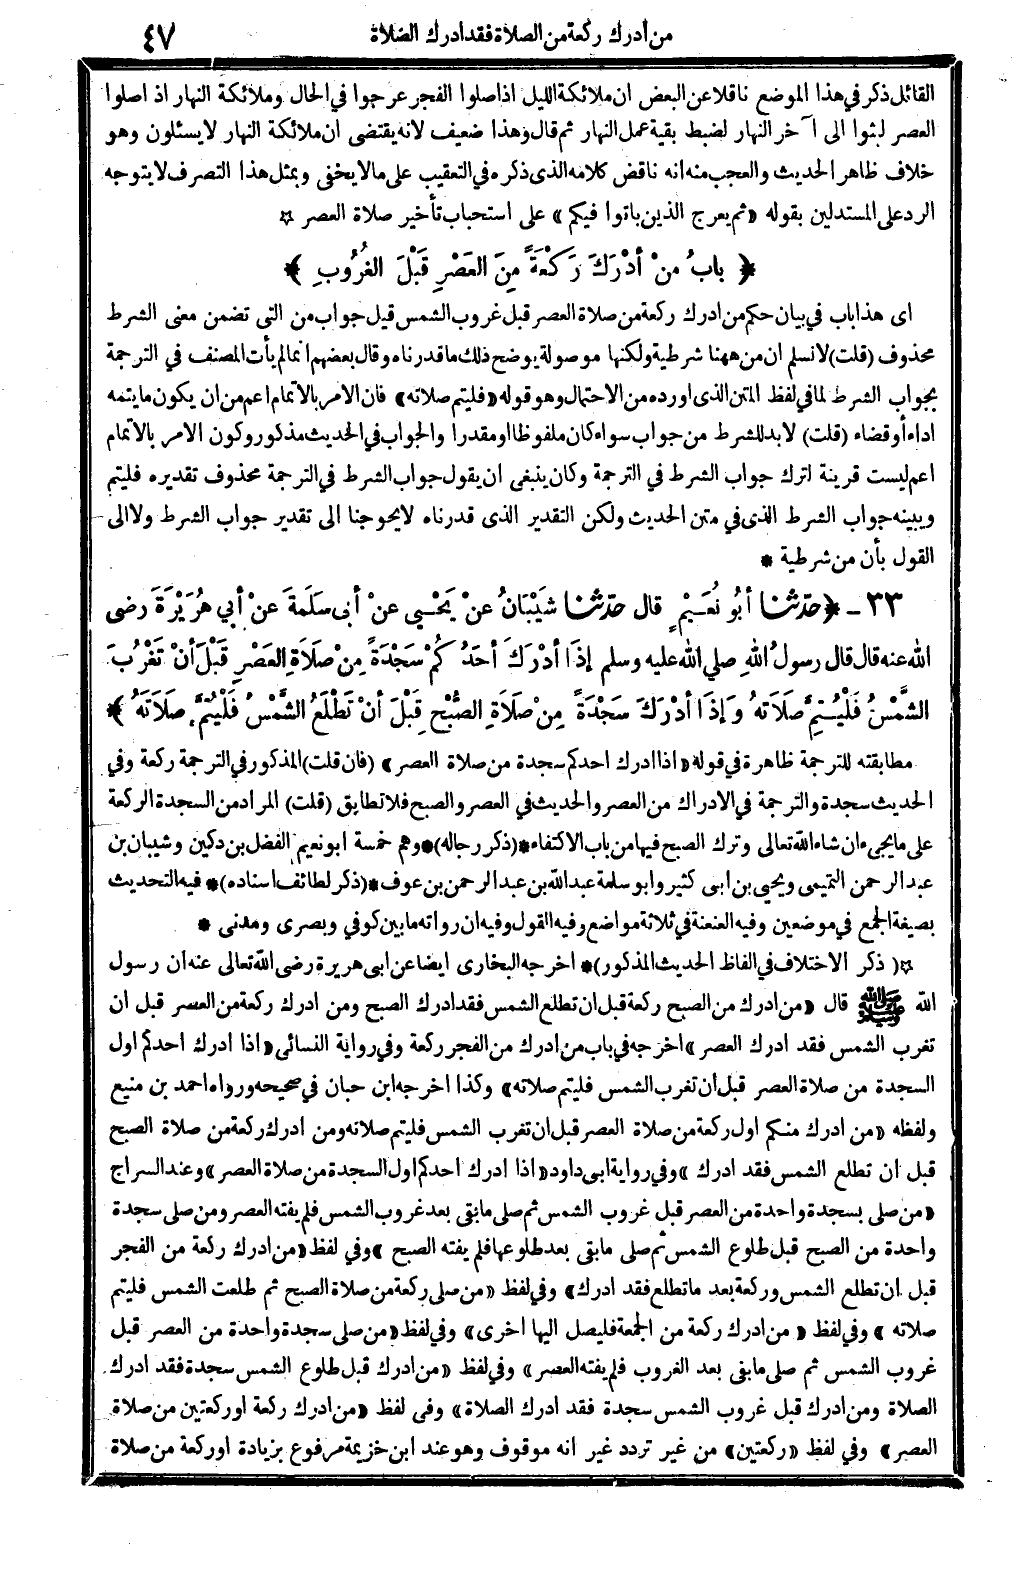 من أدرك ركعة من الصلاة فقد ادرك الصلاة ٤٧
القائل ذكر في هذا الموضع ناقلا عن البعض ان ملائكة الليل اذا صلوا الفجر عرجوا في الحال وملائكة النهار اذ اصلوا
العصر لبثوا الى آخر النهار لضبط بقية عمل النهار ثم قال وهذا ضعيف لانه يقتضى ان ملائكة النهار لا يسئلون وهو
خلاف ظاهر الحديث والعجب منه انه ناقض كلامه الذى ذكره في التعقيب على مالا يخفى وبمثل هذا التصرف لا يتوجه
الرد على المستدلين بقوله «ثم يعرج الذين باتوا فيكم» على استحباب تأخير صلاة العصر ☆
﴿ بابُ منْ أدْرَكَ رَكْعَةً مِنَ العَصْرِ قَبْلَ الغُرُوبِ ﴾
اى هذا باب في بيان حكم من ادرك ركعة من صلاة العصر قبل غروب الشمس قيل جواب من التى تضمن معنى الشرط
محذوف (قلت) لا نسلم ان من ههنا شرطية ولكنها موصولة يوضح ذلك ما قدرناه وقال بعضهم انما لم يأت المصنف في الترجمة
بجواب الشرط لما في لفظ المتن الذى اورده من الاحتمال وهو قوله «فليتم صلاته» فان الامر بالاتمام اعم من ان يكون ما يتمه
اداء أو قضاء (قلت) لا بد للشرط من جواب سواء كان ملفوظا او مقدرا والجواب في الحديث مذكور وكون الامر بالاتمام
اعم ليست قرينة لترك جواب الشرط في الترجمة وكان ينبغى ان يقول جواب الشرط في الترجمة محذوف تقديره فليتم
ويبينه جواب الشرط الذى في متن الحديث ولكن التقدير الذى قدرناه لا يحوجنا الى تقدير جواب الشرط ولا الى
القول بأن من شرطية *
٣٣ - ﴿حدّثنا أبُو نُعَيْمٍ قال حدّثنا شَيْبَانُ عنْ يَحْيى عنْ أبى سَلَمَةَ عنْ أبي هُرَيْرَةَ رضى
الله عنه قال قال رسولُ اللهِ صلي الله عليه وسلم إذَا أدْرَكَ أحَدُكُمْ سَجْدَةً مِنْ صَلَاةِ العَصْرِ قَبْلَ أنْ تَغْرُبَ
الشَّمْسُ فَلْيُتِمَّ صَلَاتَهُ وَإذَا أدْرَكَ سَجْدَةً مِنْ صَلَاةِ الصُّبْحِ قَبْلَ أنْ تَطْلُعَ الشَّمْسُ فَلْيُتِمَّ صَلَاتَهُ ﴾
مطابقته للترجمة ظاهرة في قوله «اذا ادرك احدكم سجدة من صلاة العصر» (فان قلت) المذكور في الترجمة ركعة وفي
الحديث سجدة والترجمة في الادراك من العصر والحديث في العصر والصبح فلا تطابق (قلت) المراد من السجدة الركعة
على ما يجىء ان شاء الله تعالى وترك الصبح فيها من باب الاكتفاء *(ذكر رجاله)* وهم خمسة ابو نعيم الفضل بن دكين وشيبان بن
عبد الرحمن التميمى ويحيى بن ابى كثير وابو سلمة عبد الله بن عبد الرحمن بن عوف *(ذكر لطائف اسناده)* فيه التحديث
بصيغة الجمع في موضعين وفيه العنعنة في ثلاثة مواضع وفيه القول وفيه ان رواته ما بين كوفي وبصرى ومدنى *
☆( ذكر الاختلاف في الفاظ الحديث المذكور)* اخرجه البخارى ايضا عن ابى هريرة رضى الله تعالى عنه أن رسول
الله ﷺ قال «من ادرك من الصبح ركعة قبل ان تطلع الشمس فقد ادرك الصبح ومن ادرك ركعة من العصر قبل ان
تغرب الشمس فقد ادرك العصر» اخرجه في باب من ادرك من الفجر ركعة وفي رواية النسائى «اذا ادرك احدكم اول
السجدة من صلاة العصر قبل ان تغرب الشمس فليتم صلاته» وكذا اخرجه ابن حبان في صحيحه ورواه احمد بن منيع
ولفظه «من ادرك منكم اول ركعة من صلاة العصر قبل ان تغرب الشمس فليتم صلاته ومن ادرك ركعة من صلاة الصبح
قبل ان تطلع الشمس فقد ادرك» وفي رواية ابى داود «اذا ادرك احدكم اول السجدة من صلاة العصر» وعند السراج
«من صلى بسجدة واحدة من العصر قبل غروب الشمس ثم صلى ما بقى بعد غروب الشمس فلم يفته العصر ومن صلى سجدة
واحدة من الصبح قبل طلوع الشمس ثم صلى ما بقى بعد طلوعها فلم يفته الصبح» وفي لفظ «من ادرك ركعة من الفجر
قبل ان تطلع الشمس وركعة بعد ما تطلع فقد ادرك» وفي لفظ «من صلى ركعة من صلاة الصبح ثم طلعت الشمس فليتم
صلاته» وفي لفظ «من ادرك ركعة من الجمعة فليصل اليها اخرى» وفي لفظ «من صلى سجدة واحدة من العصر قبل
غروب الشمس ثم صلى ما بقى بعد الغروب فلم يفته العصر» وفي لفظ «من ادرك قبل طلوع الشمس سجدة فقد ادرك
الصلاة ومن ادرك قبل غروب الشمس سجدة فقد ادرك الصلاة» وفى لفظ «من ادرك ركعة او ركعتين من صلاة
العصر» وفي لفظ «ركعتين» من غير تردد غير انه موقوف وهو عند ابن خزيمة مرفوع بزيادة او ركعة من صلاة